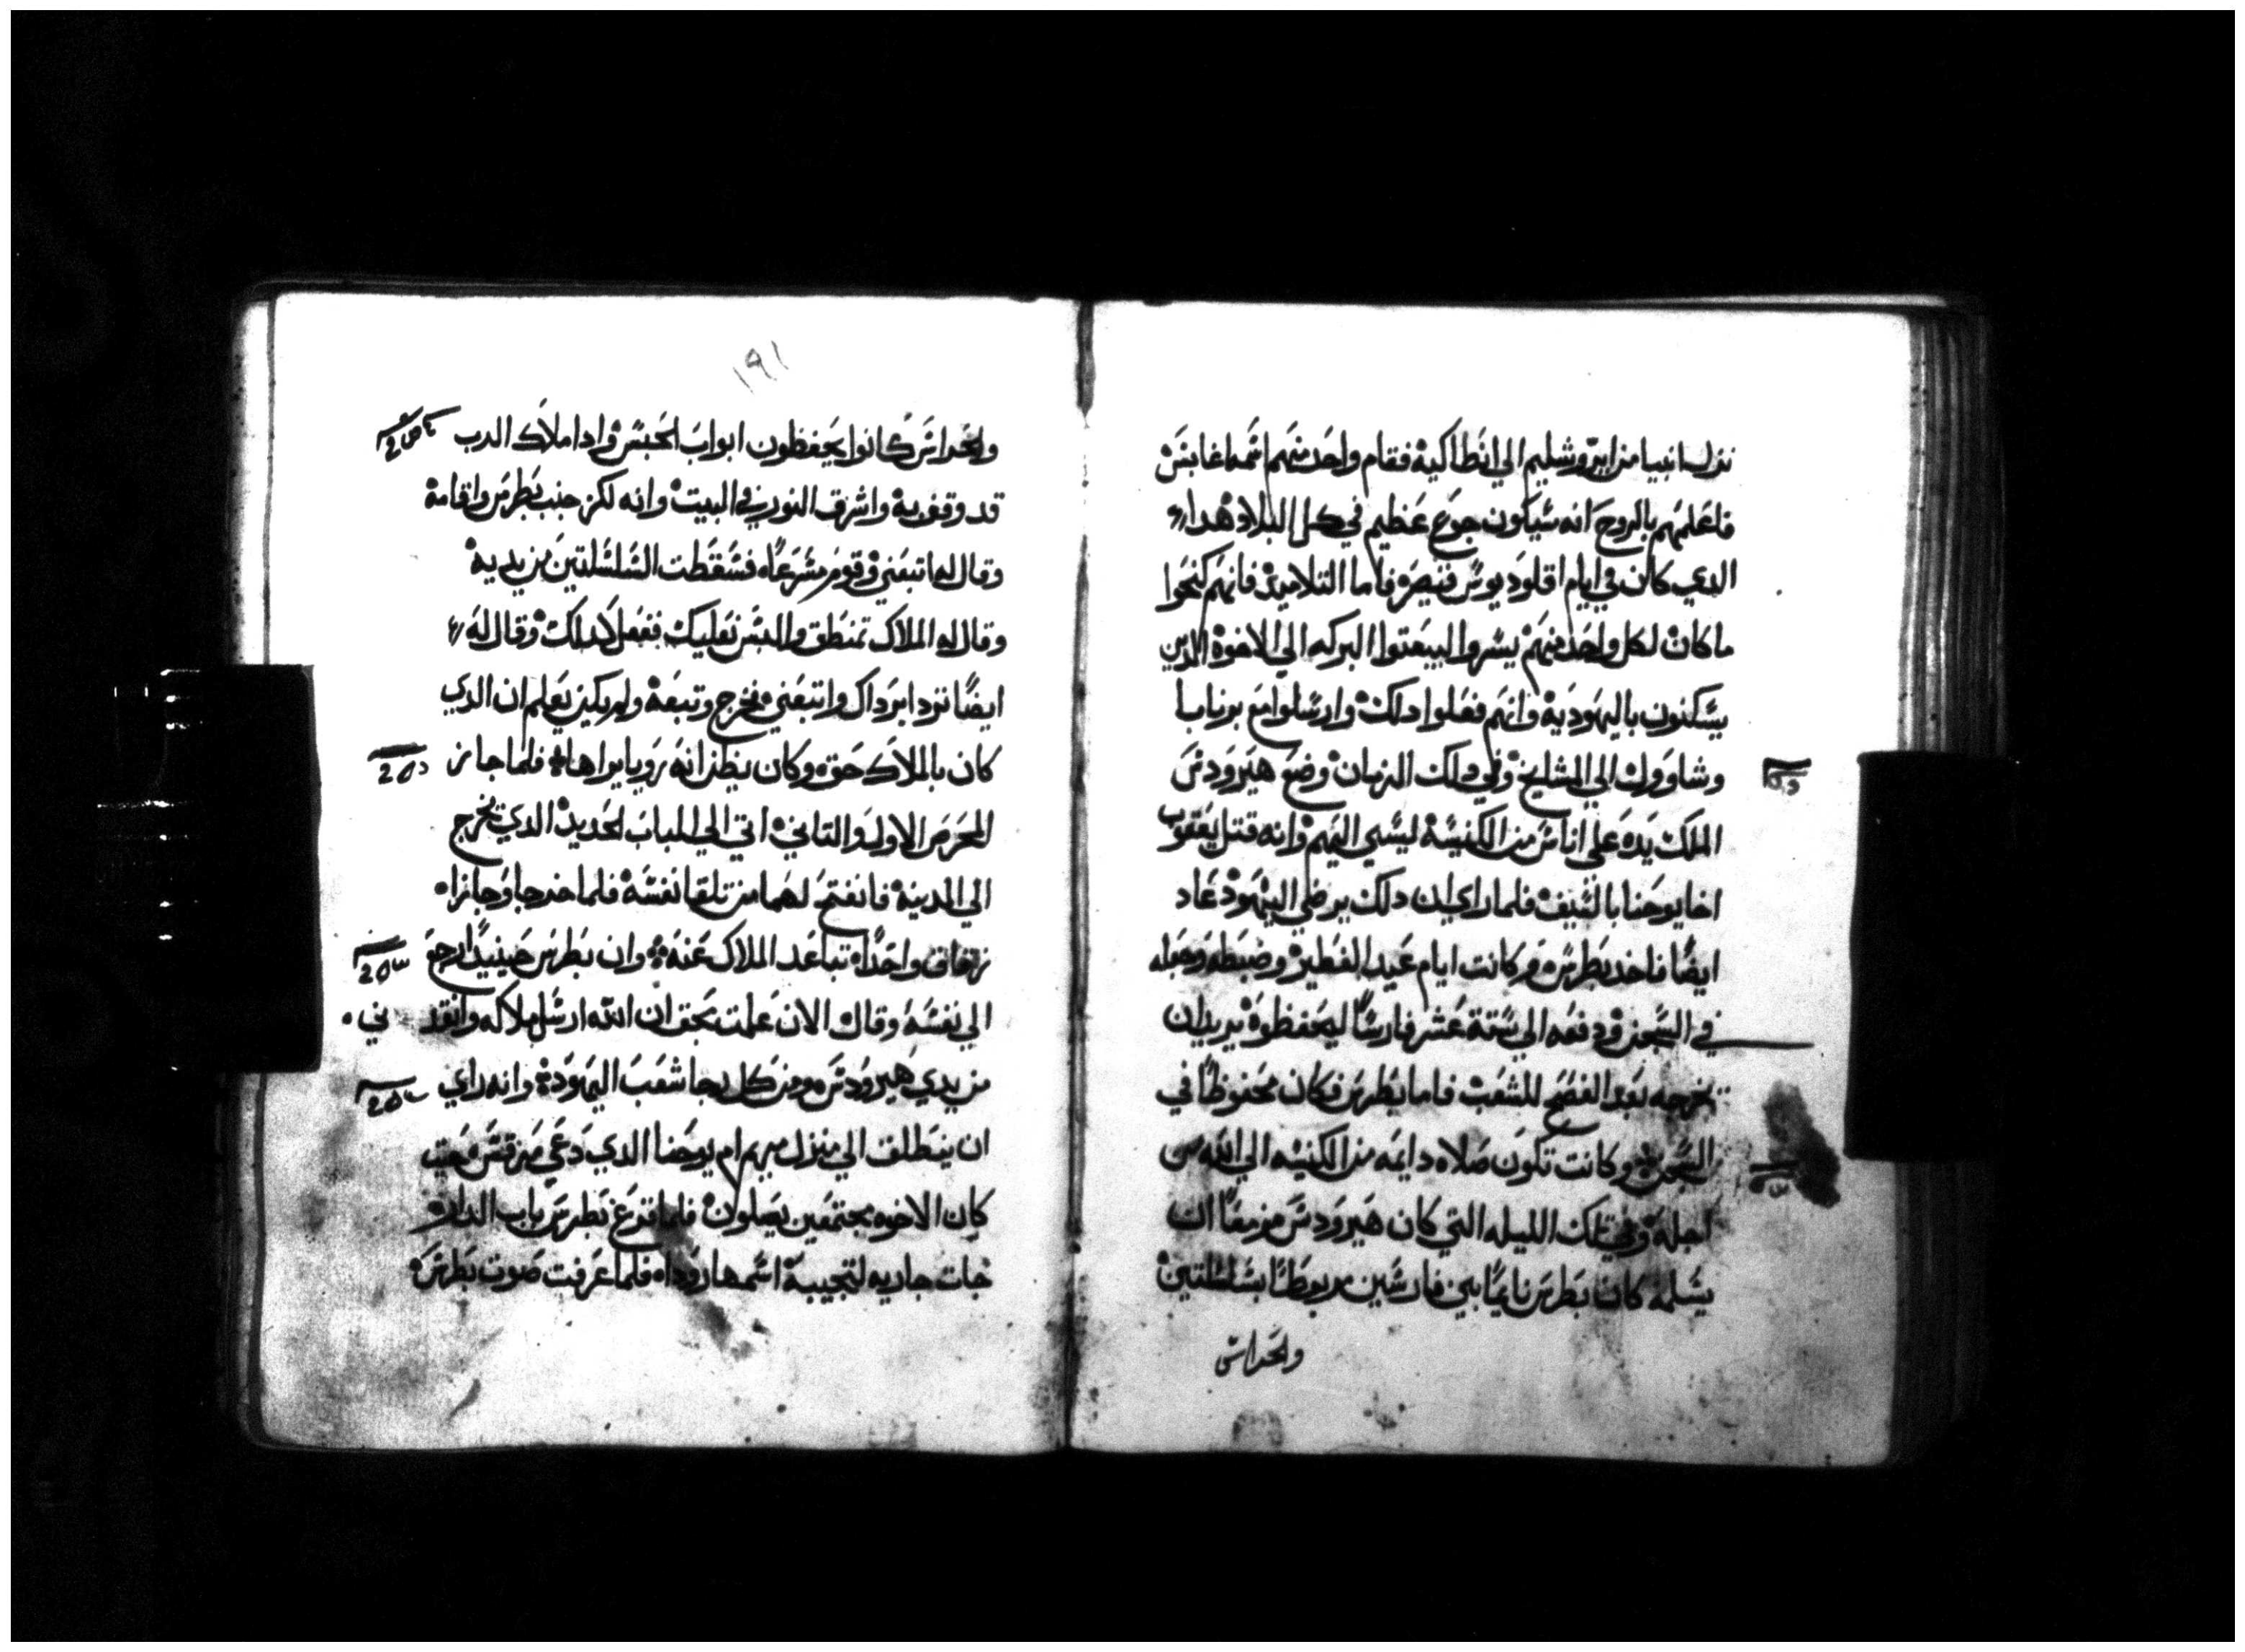 نزل انبيا من ايروشليم الي انطاكية فقام واحد منهم اسمه اغابس
فاعلمهم بالروح انه سيكون جوع عظيم في كل البلاد هدا
الدي كان في ايام اقلوديوس قيصر فاما التلاميد فانهم كنحوا
ما كان لكل واحد منهم يسروا ليبعتوا البركه الي الاخوة الدين
يسكنون باليهودية وانهم فعلوا دلك وارسلوا مع برنابا
وشاوول الي المشايخ وفي دلك الزمان وضع هيرودس
الملك يده علي اناس من الكنيسة ليسي اليهم وانه قتل يعقوب
اخا يوحنا بالسيف فلما راي ان دلك يرضي اليهود عاد
ايضا فاخد بطرس وكانت ايام عيد الفطير وضبطه وجعله
في السجن ودفعه الي ستة عشر فارسا ليحفظوه يريد ان
يخرجه بعد الفصح للشعب فاما بطرس فكان محفوظا في
السجن وكانت تكون صلاه دايمه من الكنيسه الي الله من
اجله وفي تلك الليله التي كان هيرودس مزمعا ان
يسلمه كان بطرس نايما بين فارسين مربوطا بسلسلتين
والحراس
١٩١
والحراس كانوا يحفظون ابواب الحبس وادا ملاك الرب
قد وقف به واشرق النور في البيت وانه لكز جنب بطرس واقامه
وقال له اتبعني وقوم مسرعا فسقطت السلسلتين من يديه
وقال له الملاك تمنطق والبس نعليك ففعل كدلك وقال له
ايضا تردا برداك واتبعني فخرج وتبعه ولم يكن يعلم ان الدي
كان بالملاك حق وكان يظن انه رويا يراها فلما جاز
المحرس الاول والتاني اتي الي الباب الحديد الدي يخرج
الي المدينة فانفتح لهما من تلقا نفسه فلما خرجا وجازا
زقاق واحدا تباعد الملاك عنه وان بطرس حينيدا رجع
الي نفسه وقال الان علمت بحق ان الله ارسل ملاكه وانقدني
من يدي هيرودس ومن كل رجا شعب اليهود وانه راي
ان ينطلق الي منزل مريم ام يوحنا الدي دعي مرقس حيت
كان الاخوه مجتمعين يصلون فلما قرع بطرس باب الدار
جات جاريه لتجيبه اسمها رودا فلما عرفت صوت بطرس